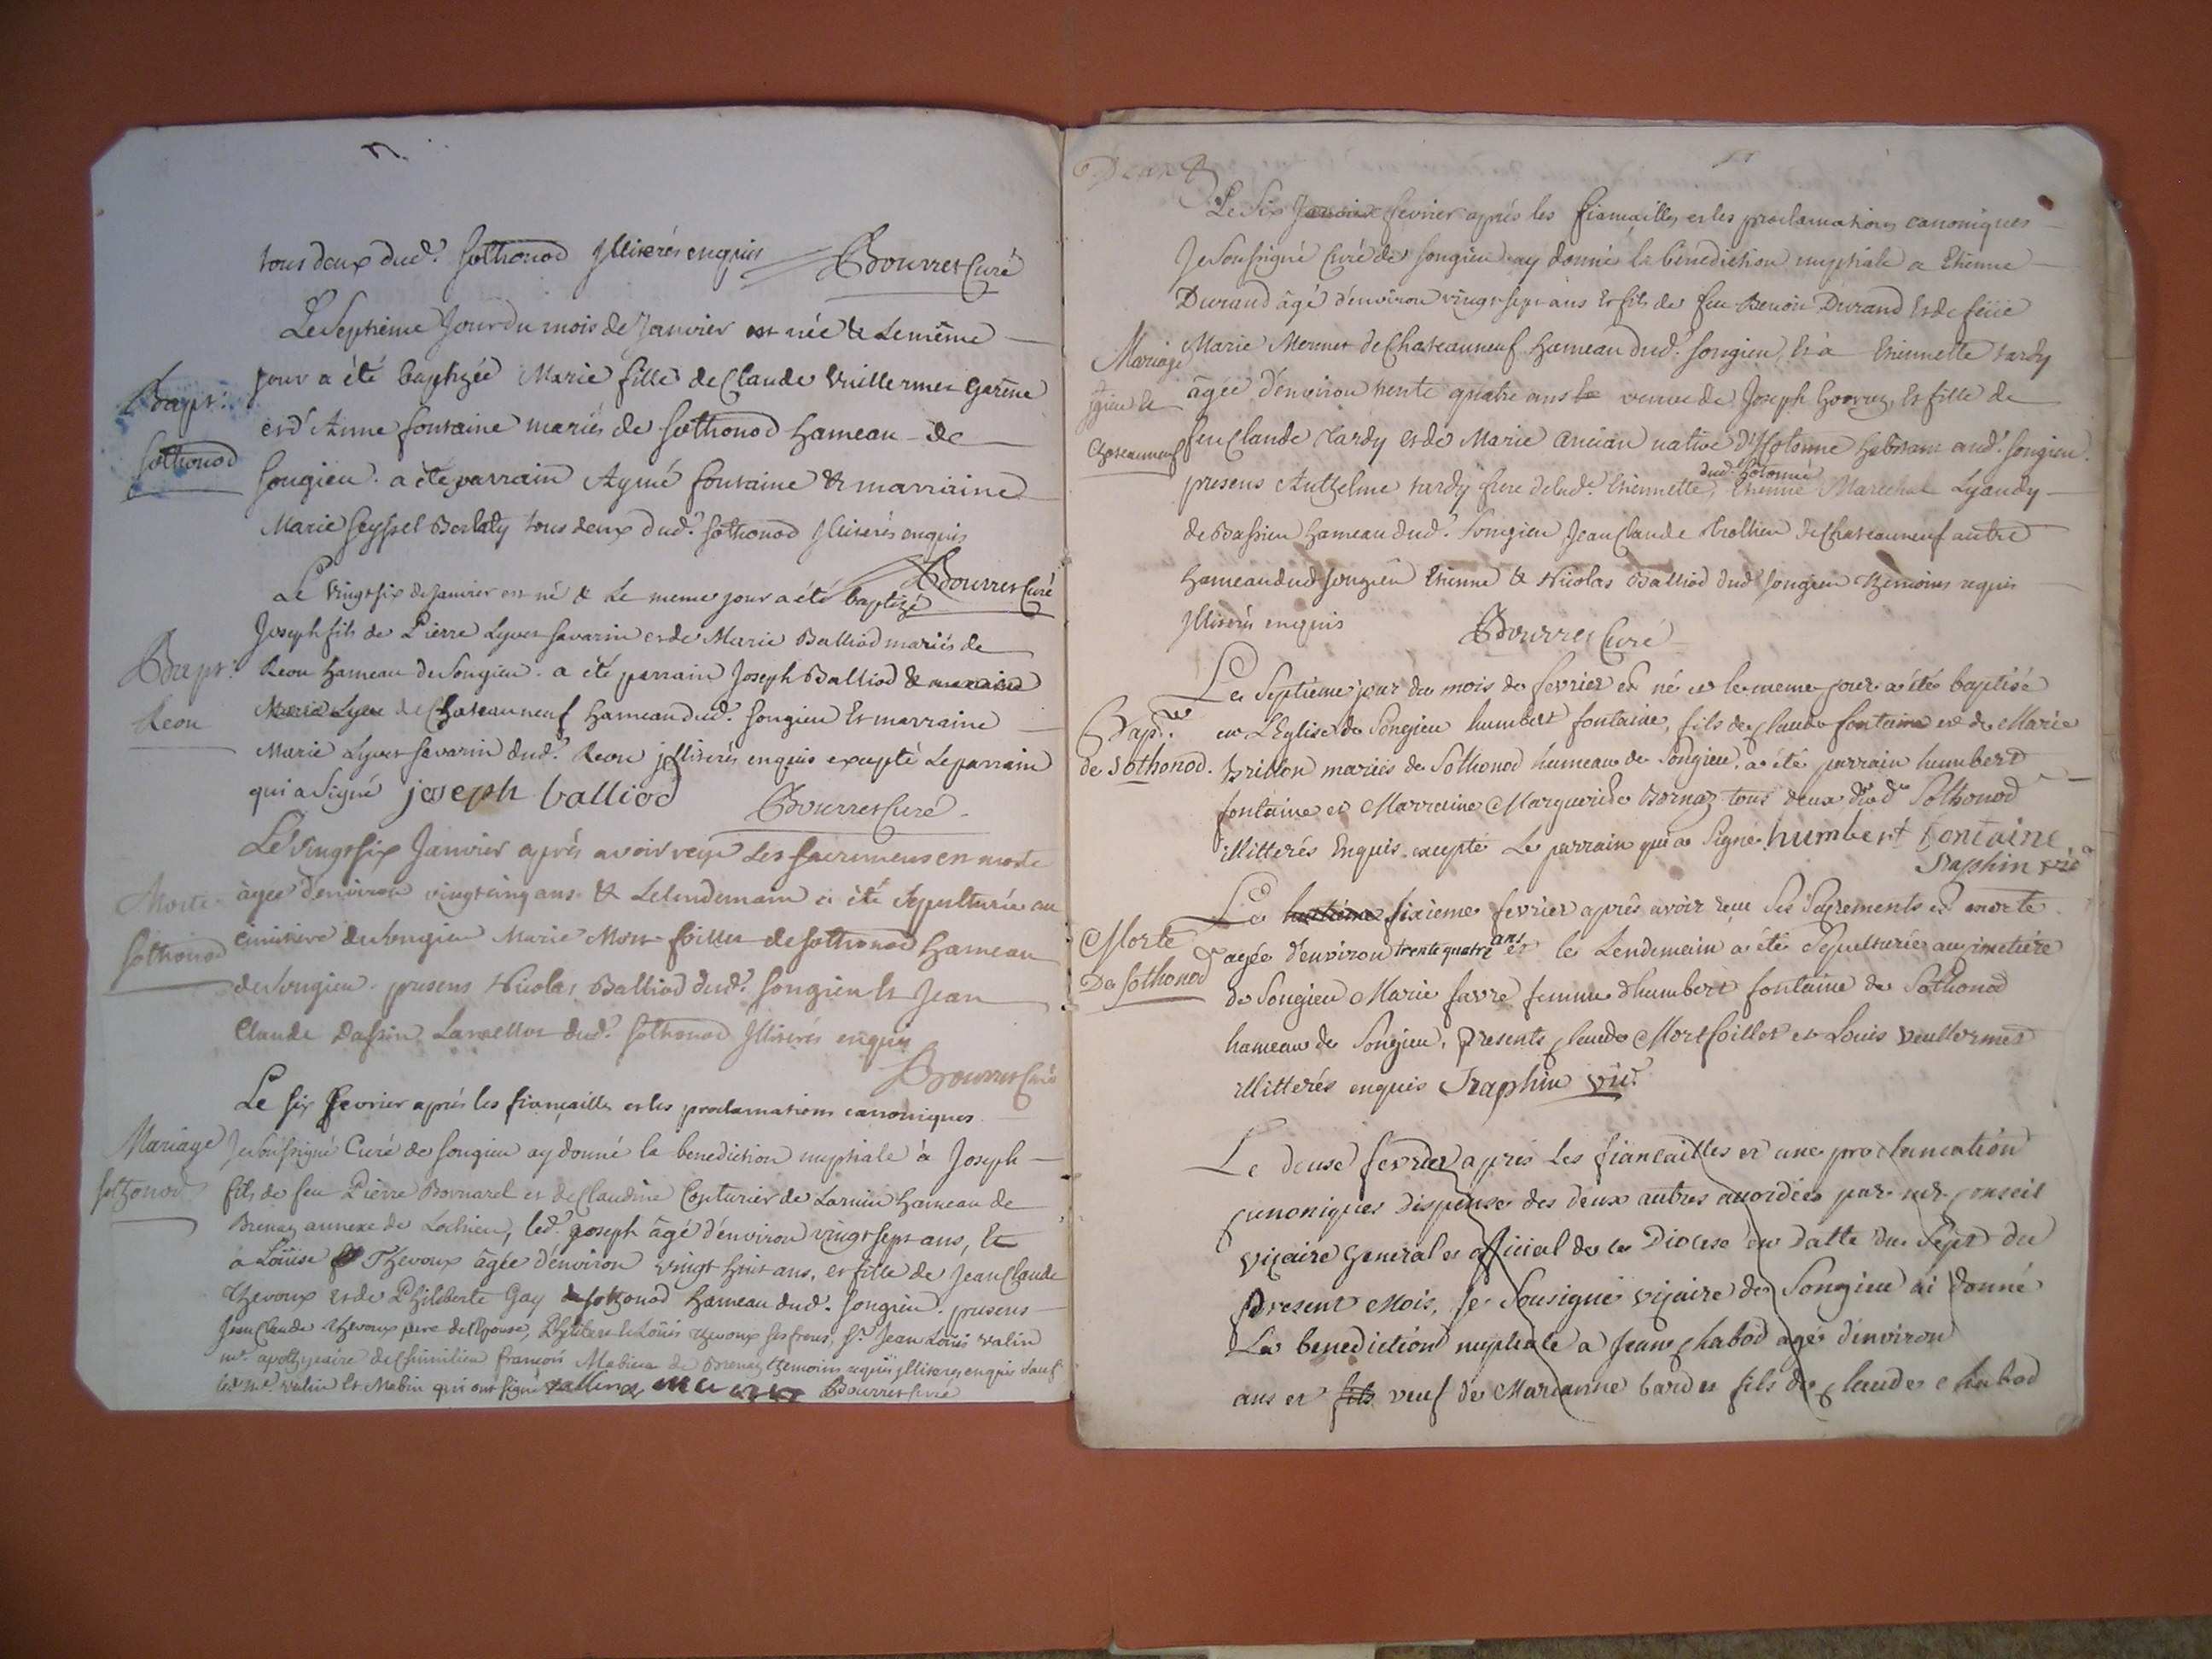 tous deux dud. Sothonod Illiterés enquis Bourret Curé
Le Septième Jour du mois de Janvier est née & le même
Bapt. jour a été baptizée Marie fille de Claude Vuillermet Garine
et d'Anne fontaine mariés de Sothonod hameau de
Sothonod Songieu. a été parrain Aymé fontaine & marraine
Marie Seyssel Berlaty tous deux dud. Sothonod Illiterés enquis
Bourret Curé
Le Vingt six de Janvier est né & le meme jour a été baptizé
Joseph fils de Pierre Lyvet Savarin et de Marie Balliod mariés de
Bapt. Reou hameau de Songieu. a été parrain Joseph Balliod & marraine
Reou Marie Lyvet de Chateauneuf hameau dud. Songieu Et marraine
Marie Lyvet Savarin dud. Reou jlliterés enquis excepté le parrain
qui a Signé joseph balliod Bourret Curé
Le vingt six Janvier après avoir reçu Les Sacremens est morte
Morte âgée d'environ vingt cinq ans & Le lendemain a été Sepulturée au
cimitiere de Songieu Marie Mort foillet de Sothonod hameau
Sothonod
de Songieu. presens Nicolas Balliod dud. Songieu Et Jean
Claude Dassin dud. Sothonod Illiterés enquis
Bourret Curé
Le six fevrier après les fiançailles et les proclamations canoniques
Mariage Je Soussigné Curé de Songieu ay donné la benediction nuptiale à Joseph
Sothonod fils de feu Pierre Bornarel et de Claudine Couturier de hameau de
Brenaz annexe de Lochieu, led. joseph âgé d'environ vingt sept ans, Et
a Loüise Thevoux âgée d'environ vingt huit ans, et fille de Jean Claude
Thevoux et de Philiberte Gay de Sothonod hameau dud. Songieu. presens
Jean Claude thevoux pere de l'Epouse, Philibert & Loüis thevoux ses freres, Sr. Jean Loüis Valin
me. apothicaire de Chimilieu françois Mabieu de Brenaz themoins requis jlliterés enquis Sauf
led. me. Valin Et Mabin qui ont signé Bourret Curé
Deux
Le Six Janvier fevrier après les fiançailles et les proclamations canoniques
Je Soussigné Curé de Songieu ay donné la bénédiction nuptiale a Etienne
Durand âgé d'environ vingt sept ans Et fils de feu Benoit Durand Et de feüe
Mariage Marie Mermet de Chateauneuf hameau dud. Songieu, Et à Etiennette tardy
âgée d'environ trente quatre ans veuve de Joseph Et fille de
Chateauneuf feu Claude tardy et de Marie Ancian native d'Hotonne habitant aud. Songieu.
dud. hotonne
presens Anthelme tardy frere de lad. Etiennette, Etienne Marechal Lyaudy
de Bassieu hameau dud. Songieu Jean Claude Trollieu de Chateauneuf autre
hameau dud Songieu Etienne & Nicolas Balliod dud Songieu themoins requis
Illiterés enquis Bourret Curé
Le Septieme jour du mois de fevrier est né et le meme jour a été baptisé
Bapt. en L'Eglise de Songieu humbert fontaine, fils de Claude fontaine et de Marie
de Sothonod. brillon mariés de Sothonod hameau de Songieu, a été parrain humbert
fontaine et Marraine Margueride Bornaz tous deux dud. Sothonod
illitterés Enquis excepté Le parrain qui a Signé humbert fontaine
Traphin vic
Le huitieme sixieme fevrier après avoir reçu Ses Sacrements est morte
Morte agée d'environ trente quatre ans et le Lendemain a été Sepulturée au cimetiére
De Sothonod de Songieu Marie favre femme d'humbert fontaine de Sothonod
hameau de Songieu, presents Claude Mortfoillet et Louis veullermet
illitterés enquis Traphin vic.
Le douse fevrier après les fiancailles et une proclamation
canoniques dispense des deux autres accordées par mr. conseil
vicaire general et official de ce Diocese en datte du Sept du
present Mois, je Sousigné vicaire de Songieu ai donné
La benediction nuptiale a jean chabod agé d'environ
ans et fils veuf de Marianne bardet fils de claude chabod